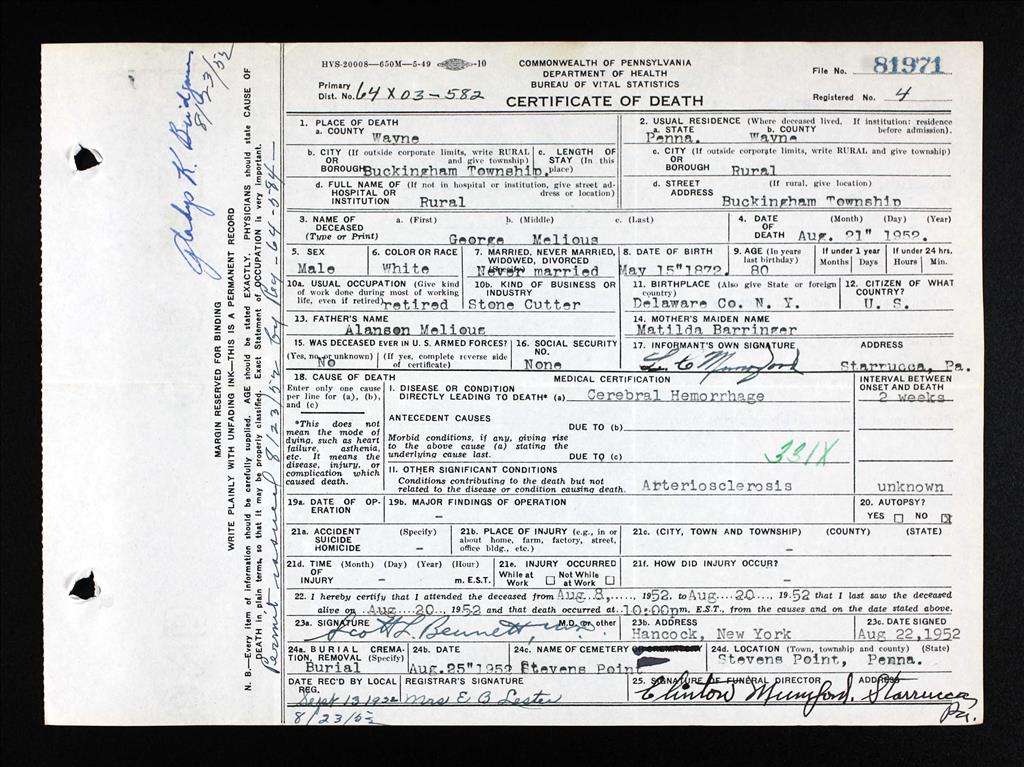 HVS-20008—650M—5-49 -10
COMMONWEALTH OF PENNSYLVANIA
DEPARTMENT OF HEALTH
BUREAU OF VITAL STATISTICS
CERTIFICATE OF DEATH
Primary
Dist. No. 64 X 03-582
File No. 81971
Registered No. 4
1. PLACE OF DEATH
a. COUNTY Wayne
2. USUAL RESIDENCE (Where deceased lived. If institution: residence before admission).
a. STATE Penna. b. COUNTY Wayne
b. CITY (If outside corporate limits, write RURAL and give township)
OR
BOROUGH Buckingham Township.
c. LENGTH OF STAY (In this place)
c. CITY (If outside corporate limits, write RURAL and give township)
OR
BOROUGH Rural
d. FULL NAME OF (If not in hospital or institution, give street address or location)
HOSPITAL OR
INSTITUTION Rural
d. STREET (If rural, give location)
ADDRESS Buckingham Township
3. NAME OF DECEASED (Type or Print)
a. (First) b. (Middle) c. (Last)
George Melious
4. DATE OF DEATH (Month) (Day) (Year)
Aug. 21" 1952.
5. SEX
Male
6. COLOR OR RACE
White
7. MARRIED, NEVER MARRIED, WIDOWED, DIVORCED
Never married
8. DATE OF BIRTH
May 15"1872.
9. AGE (In years last birthday)
80
If under 1 year
Months Days
If under 24 hrs.
Hours Min.
10a. USUAL OCCUPATION (Give kind of work done during most of working life, even if retired) retired
10b. KIND OF BUSINESS OR INDUSTRY
Stone Cutter
11. BIRTHPLACE (Also give State or foreign country)
Delaware Co. N. Y.
12. CITIZEN OF WHAT COUNTRY?
U. S.
13. FATHER'S NAME
Alanson Melious
14. MOTHER'S MAIDEN NAME
Matilda Barringer
15. WAS DECEASED EVER IN U. S. ARMED FORCES?
(Yes, no or unknown) (If yes, complete reverse side of certificate)
No
16. SOCIAL SECURITY NO.
None
17. INFORMANT'S OWN SIGNATURE ADDRESS
L. C Mumford Starrucca, Pa.
18. CAUSE OF DEATH
Enter only one cause per line for (a), (b), and (c)
*This does not mean the mode of dying, such as heart failure, asthenia, etc. It means the disease, injury, or complication which caused death.
MEDICAL CERTIFICATION
INTERVAL BETWEEN ONSET AND DEATH
I. DISEASE OR CONDITION
DIRECTLY LEADING TO DEATH* (a) Cerebral Hemorrhage
2 weeks
ANTECEDENT CAUSES
DUE TO (b)
Morbid conditions, if any, giving rise to the above cause (a) stating the underlying cause last.
DUE TO (c)
331X
II. OTHER SIGNIFICANT CONDITIONS
Conditions contributing to the death but not related to the disease or condition causing death.
Arteriosclerosis
unknown
19a. DATE OF OPERATION
19b. MAJOR FINDINGS OF OPERATION
–
20. AUTOPSY?
YES NO X
21a. ACCIDENT (Specify)
SUICIDE
HOMICIDE –
21b. PLACE OF INJURY (e.g., in or about home, farm, factory, street, office bldg., etc.)
21c. (CITY, TOWN AND TOWNSHIP) (COUNTY) (STATE)
–
21d. TIME (Month) (Day) (Year) (Hour)
OF
INJURY – m. E.S.T.
21e. INJURY OCCURRED
While at Work Not While at Work
21f. HOW DID INJURY OCCUR?
–
22. I hereby certify that I attended the deceased from Aug 8, 1952 to Aug 20 1952 that I last saw the deceased
alive on Aug 20 1952 and that death occurred at 10:00pm. E.S.T., from the causes and on the date stated above.
23a. SIGNATURE M.D. or other
Scott L. Bennett, M.D.
23b. ADDRESS
Hancock, New York
23c. DATE SIGNED
Aug 22,1952
24a. BURIAL CREMATION, REMOVAL (Specify)
Burial
24b. DATE
Aug.25"1952
24c. NAME OF CEMETERY OR CREMATORY
Stevens Point
24d. LOCATION (Town, township and county) (State)
Stevens Point, Penna.
DATE REC'D BY LOCAL REG.
Sept 13 1952
8/23/52
REGISTRAR'S SIGNATURE
Mrs E B Lester
25. SIGNATURE OF FUNERAL DIRECTOR ADDRESS
Clinton Mumford. Starrucca
Pa.
Gladys K. Bridgman
8/23/52
MARGIN RESERVED FOR BINDING
WRITE PLAINLY WITH UNFADING INK—THIS IS A PERMANENT RECORD
N. B.—Every item of information should be carefully supplied. AGE should be stated EXACTLY. PHYSICIANS should state CAUSE OF
DEATH in plain terms, so that it may be properly classified. Exact Statement of OCCUPATION is very important.
Permit issued 8/23/52 by Reg-64-584-